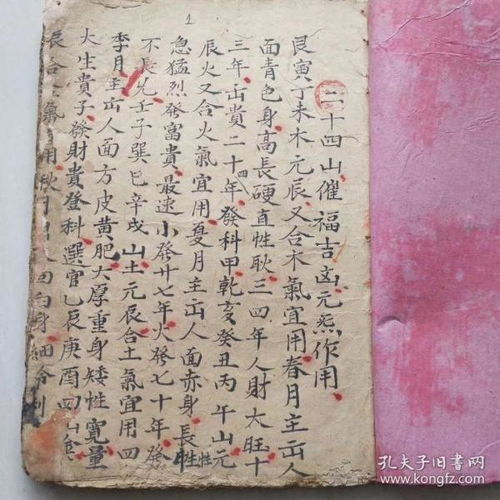 二十四山催福吉凶元炁作用
艮寅丁未木元辰又合木氣宜用春月主出人
面青色身高長硬直性耿三四年人財大旺十
三年出貴二十四年發科甲乾亥癸丑丙午山元
辰火又合火氣宜用夏月主出人面赤身長性
急猛烈發富貴最速小發廿七年大發七十年發
不長先壬子巽巳辛戌山土元辰合土氣宜用四
季月主出人面方皮黃肥大厚重身矮性寬量
大生貴子發財貴登科選官乙辰庚酉四山金
辰合金氣宜用秋月出人面白身
1
孔夫子旧书网
www.kongfz.com